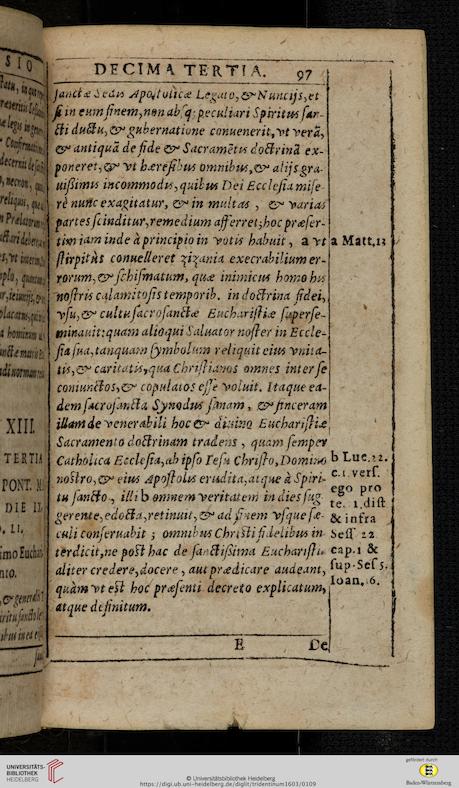 DECIMA TERTIA. 97
sanctæ Sedis Apostolicæ Legato, & Nuncijs, et
si in eum finem, non absq; peculiari Spiritus san-
cti ductu, & gubernatione conuenerit, vt verā,
& antiquā de fide & Sacramētis doctrinā ex-
poneret, & vt hæresibus omnibus, & alijs gra-
uissimis incommodis, quibus Dei Ecclesia mise-
rè nunc exagitatur, & in multas, & varias
partes scinditur, remedium afferret; hoc præser-
tim iam inde à principio in votis habuit, a vt
stirpitùs conuelleret zizania execrabilium er-
rorum, & schismatum, quæ inimicus homo his
nostris calamitosis temporib. in doctrina fidei,
vsu, & cultu sacrosanctæ Eucharistiæ superse-
minauit: quam alioqui Saluator noster in Eccle-
sia sua, tanquam symbolum reliquit eius vnita-
tis, & caritatis, qua Christianos omnes inter se
coniunctos, & copulatos esse voluit. Itaque ea-
dem sacrosancta Synodus sanam, & sinceram
illam de venerabili hoc & diuino Eucharistiæ
Sacramento doctrinam tradens, quam semper
Catholica Ecclesia, ab ipso Iesu Christo, Domino
nostro, & eius Apostolis erudita, atque à Spiri-
tu sancto, illi b omnem veritatem in dies sug
gerente, edocta, retinuit, & ad finem vsque sæ-
culi conseruabit; omnibus Christi fidelibus in-
terdicit, ne post hac de sanctissima Eucharistia
aliter credere, docere, aut prædicare audeant,
quàm vt est hoc præsenti decreto explicatum,
atque definitum.
E De
a Matt. 13
b Luc. 22.
c. 1. vers.
ego pro
te. 1. dist
& infra
Sess 22
cap. 1 &
sup. Ses 5.
Ioan. 16.
SIO
XIII.
TERTIA
PONT. M.
DIE II.
UNIVERSITÄTS-
BIBLIOTHEK
HEIDELBERG
© Universitätsbibliothek Heidelberg
https://digi.ub.uni-heidelberg.de/diglit/tridentinum1603/0109
gefördert durch
Baden-Württemberg